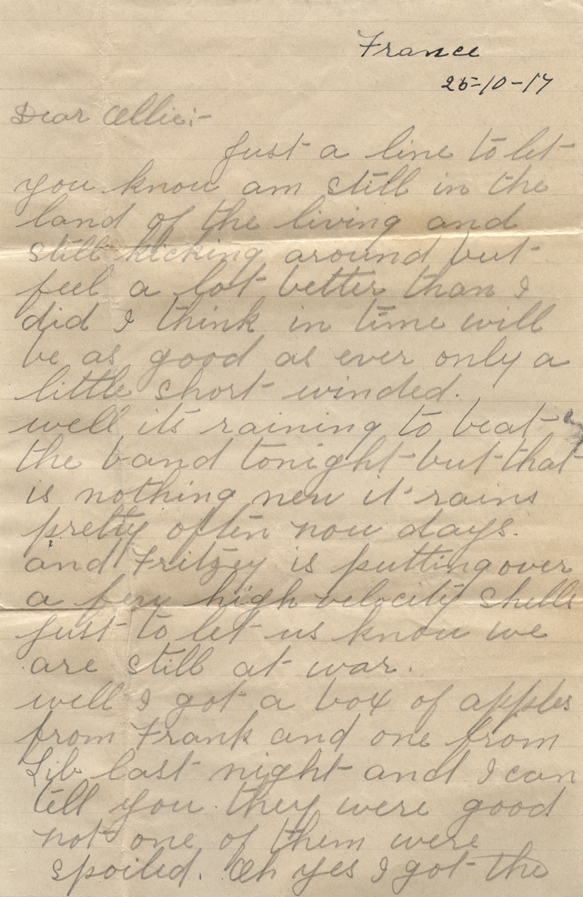 France
25-10-17
Dear Ollie:-
Just a line to let
you know am still in the
land of the living and
still kicking around but
feel a lot better than I
did I think in time will
be as good as ever only a
little short winded.
well its raining to beat
the band tonight but that
is nothing new it rains
pretty often now days.
and Fritzey is putting over
a few high velocity shells
just to let us know we
are still at war.
well I got a box of apples
from Frank and one from
Lib last night and I can
tell you they were good
not one of them were
spoiled. Oh yes I got the